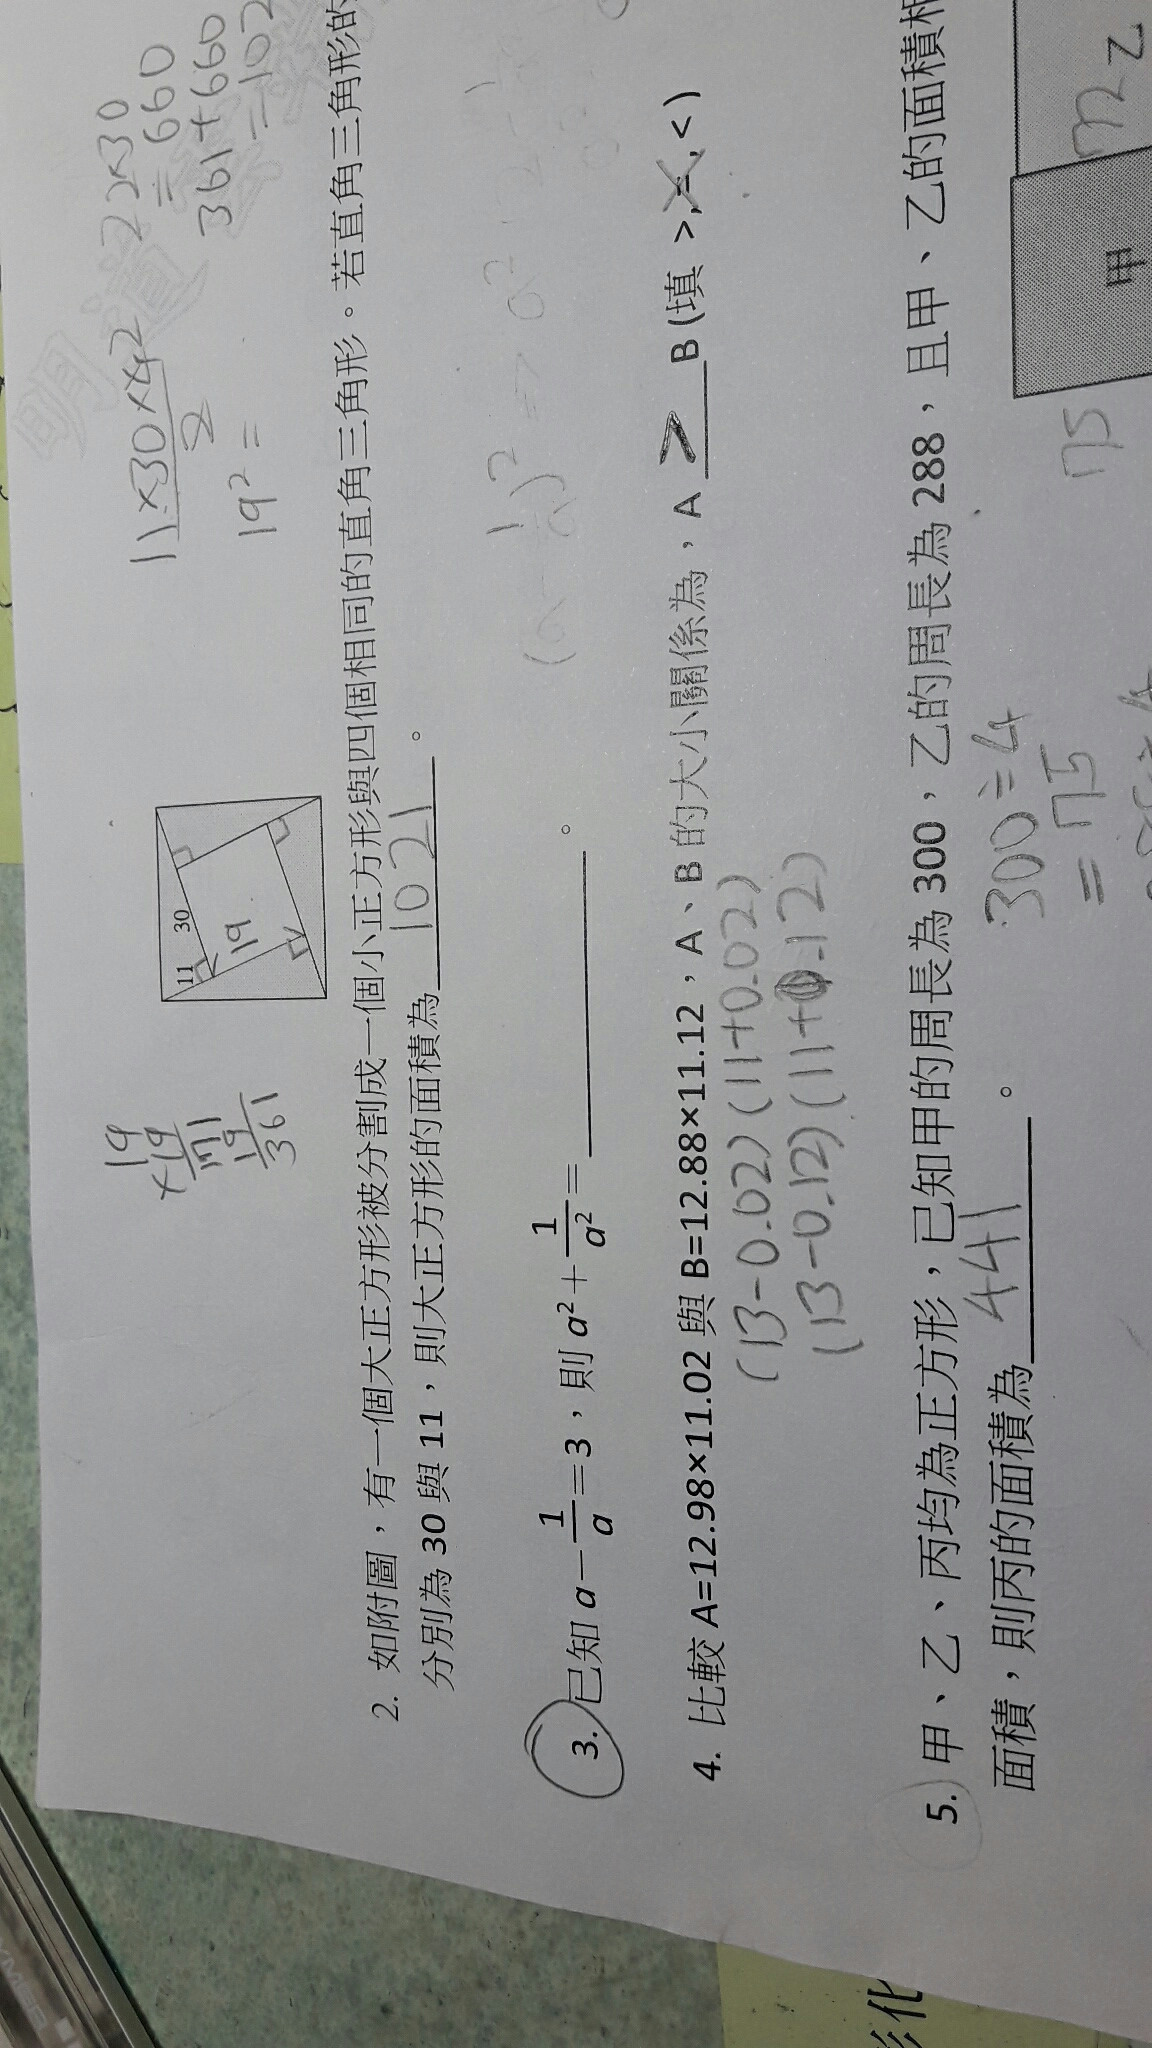 11×30×4²
2
22×30
=660
19²=
361+660
=102
19
×19
171
19
361
11
30
19
2. 如附圖，有一個大正方形被分割成一個小正方形與四個相同的直角三角形。若直角三角形的
分別為 30 與 11，則大正方形的面積為 1021 。
3. 已知 a－1/a＝3，則 a²＋1/a²＝________。
4. 比較 A=12.98×11.02 與 B=12.88×11.12，A、B 的大小關係為，A > B (填 >,=,<)
(13-0.02)(11+0.02)
(13-0.12)(11+0.12)
5. 甲、乙、丙均為正方形，已知甲的周長為 300，乙的周長為 288，且甲、乙的面積相
面積，則丙的面積為 441 。
300÷4
=75
75
甲
72
乙
明道
彩化